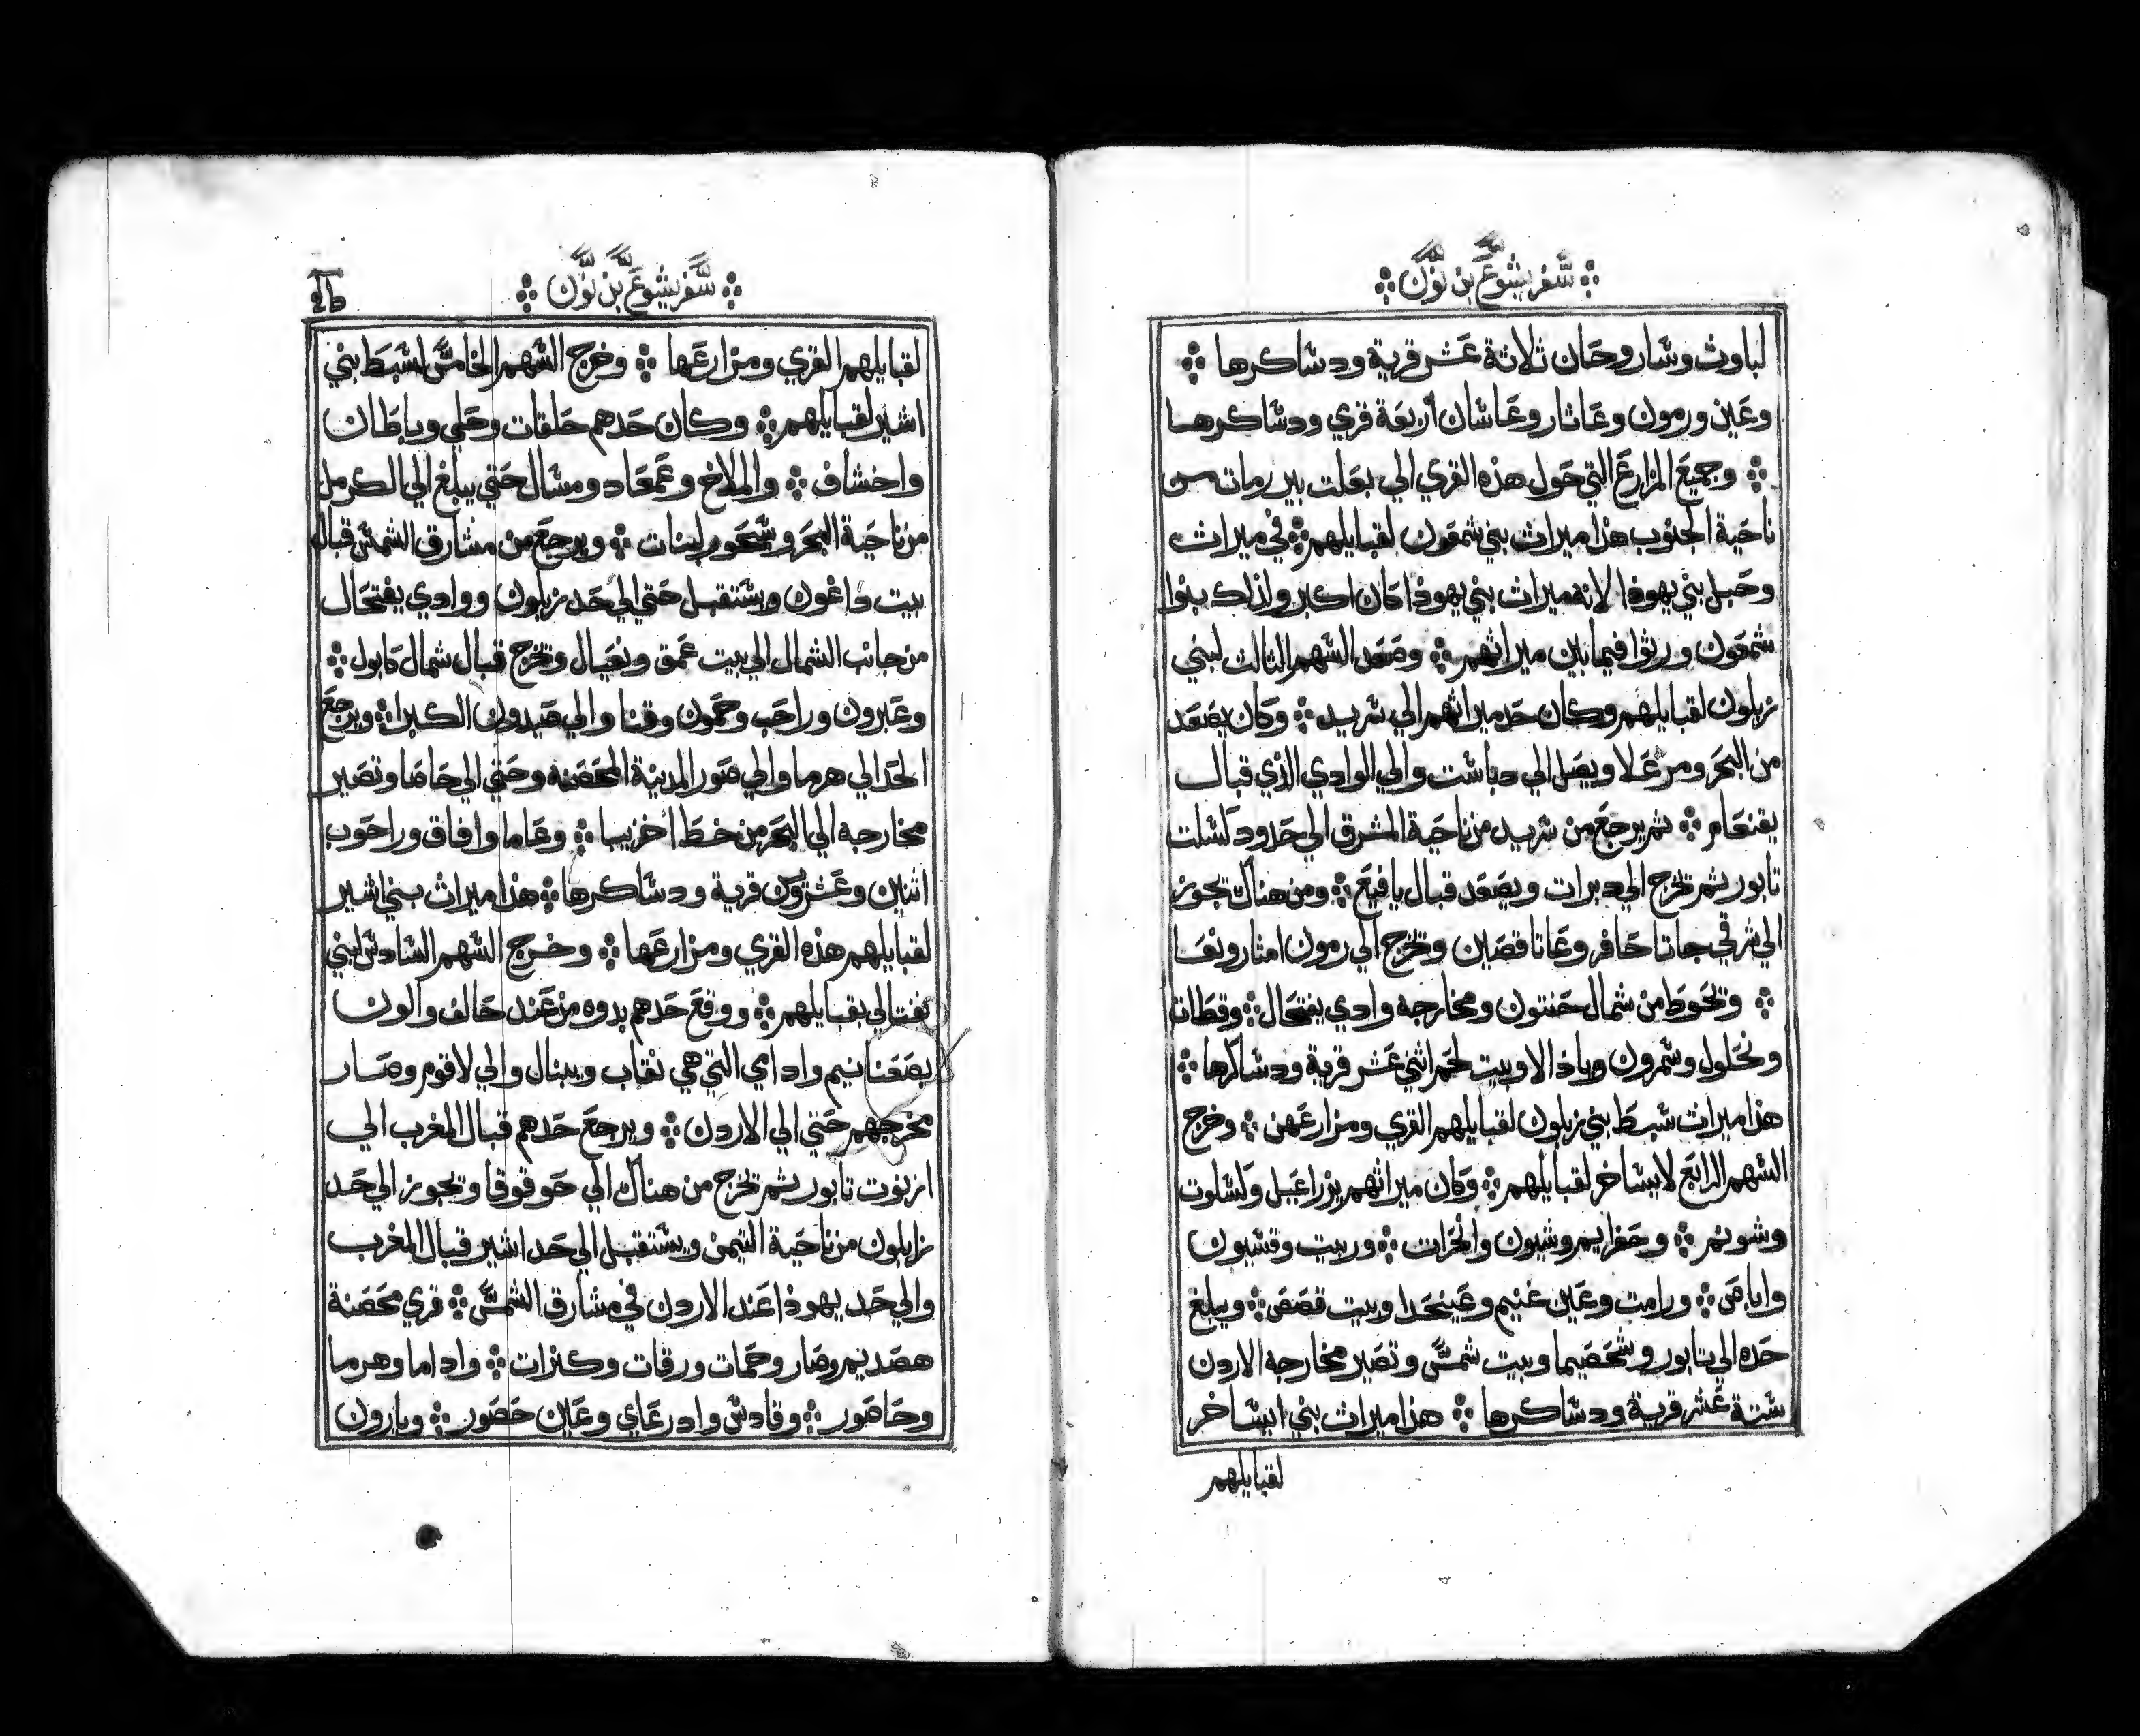 سفر يشوع بن نون
لباوث وشاروحان ثلاثة عشر قرية ودساكرها
وعين ورمون وعاثار وعاشان اربعة قري ودساكرها
وجميع المزارع التي حول هذه القري الي بعلت بير رمات من
ناحية الجنوب هذا ميراث بني شمعون لقبايلهم في ميراث
وحبل بني يهوذا لانه ميراث بني يهوذا كان اكبر ولذلك بنوا
شمعون ورثوا فيما بين ميراثهم وصعد السهم الثالث لبني
زبلون لقبايلهم وكان حد ميراثهم الي سريد وكان يصعد
من البحر ومرعلا ويصل الي دباست والي الوادي الذي قبال
يقنعام ثم يرجع من سريد من ناحية المشرق الي حدود لسلت
تابور ثم تخرج الي دبرات ويصعد قبال يافيع ومن هناك تجوز
الي شرقي جاتا حافر وعاتا قصين وتخرج الي رمون امثار ونعا
وتحوط من شمال حنتون ومخارجه وادي يفتحال وقطات
ونحلول وشمرون وياذالا وبيت لحم اثني عشر قرية ودساكرها
هذا ميراث سبط بني زبلون لقبايلهم القري ومزارعهن وخرج
السهم الرابع لايساخر لقبايلهم وكان ميراثهم يزراعيل ولسلوت
وشونم وحفرايم وشيون وانحرات وربيت وقسيون
واباص ورامت وعين غنيم وعينحدا وبيت قصص ويبلغ
حده الي تابور وشحصيما وبيت شمس وتصير مخارجه الاردن
ستة عشر قرية ودساكرها هذا ميراث بني ايساخر
لقبايلهم
سفر يشوع بن نون
لقبايلهم القري ومزارعها وخرج السهم الخامس لسبط بني
اشير لقبايلهم وكان حدهم حلقات وحلي وباطان
واخشاف والملاخ وعمعاد ومسال حتي يبلغ الي الكرمل
من ناحية البحر وشحور لبنات ويرجع من مشارق الشمس قبال
بيت داغون ويستقبل حتي الي حد زبلون ووادي يفتحال
من جانب الشمال الي بيت عمق ونعيال وتخرج قبال شمال كابول
وعبرون وراحب وحمون وقنا والي صيدون الكبرا ويرجع
الحد الي هرما والي صور المدينة المحصنه وحتي الي حاصا وتصير
مخارجه الي البحر من خط اخزيبا وعاما وافاق وراحوب
اثنين وعشرون قرية ودساكرها هذا ميراث بني اشير
لقبايلهم هذه القري ومزارعها وخرج السهم السادس لبني
نفتالي بقبايلهم ووقع حدهم بدوه من عند حالف والون
بصعنانيم وادامي التي هي نقاب ويبنال والي لاقوم وصار
مخرجهم حتي الي الاردن ويرجع حدهم قبال المغرب الي
ازنوت تابور ثم تخرج من هناك الي حوقوقا وتجوز الي حد
زابلون من ناحية التيمن ويستقبل الي حد اشير قبال المغرب
والي حد يهوذا عند الاردن في مشارق الشمس قري محصنة
هصديم وصار وحمات ورقات وكنرات واداما وهرما
وحاصور وقادس وادرعاي وعين حصور ويارون